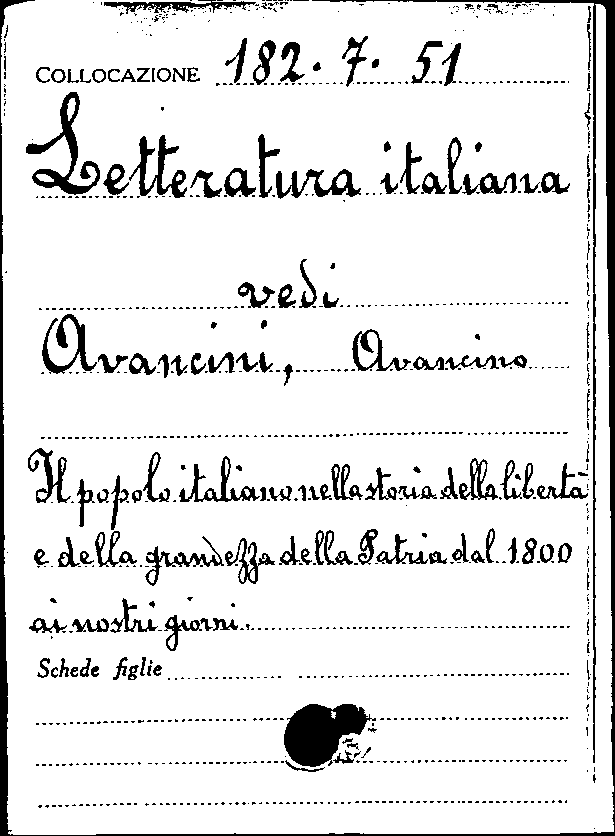 COLLOCAZIONE 182. 7. 51
Letteratura italiana
vedi
Avancini, Avancino
Il popolo italiano nella storia della libertà
e della grandezza della Patria dal 1800
ai nostri giorni.
Schede figlie